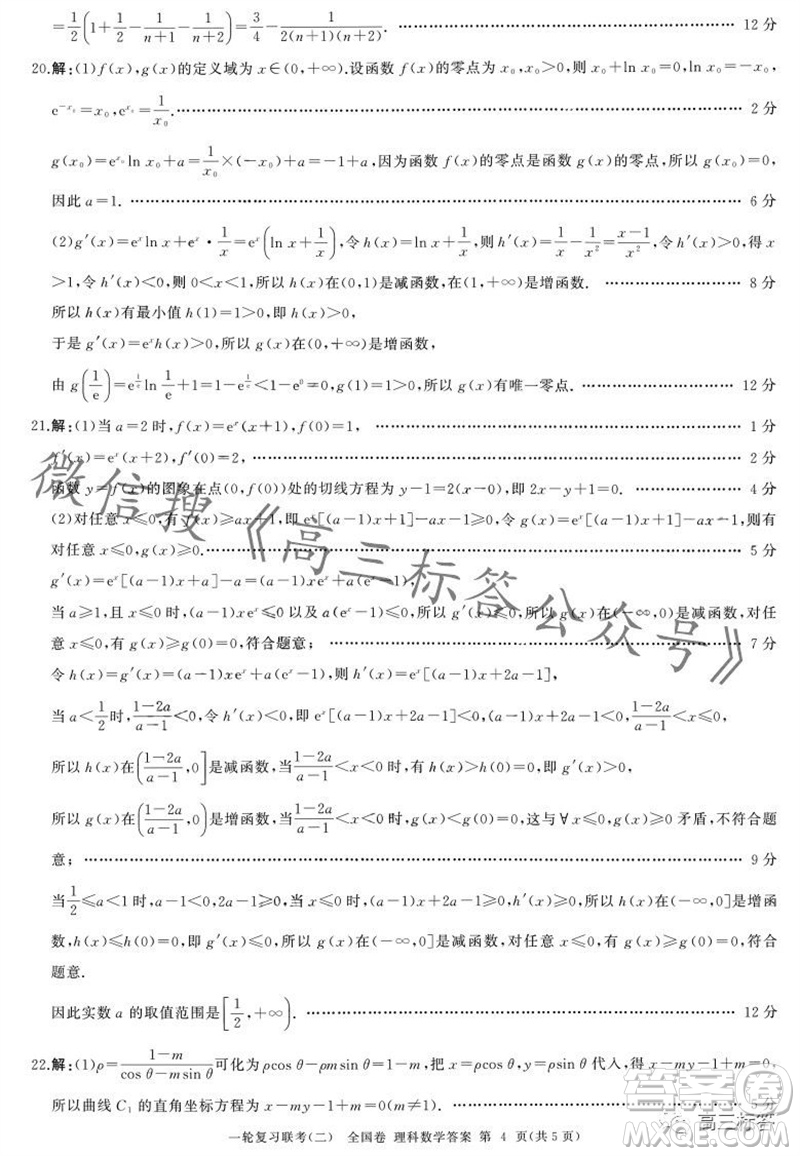 =\frac{1}{2}\left(1+\frac{1}{2}-\frac{1}{n+1}-\frac{1}{n+2}\right)=\frac{3}{4}-\frac{1}{2(n+1)(n+2)}. …… 12 分
20.解:(1)f(x),g(x)的定义域为 x∈(0,+∞).设函数 f(x)的零点为 x₀,x₀>0,则 x₀+ln x₀=0,ln x₀=-x₀,
e^{-x₀}=x₀,e^{x₀}=\frac{1}{x₀}. …… 2 分
g(x₀)=e^{x₀}ln x₀+a=\frac{1}{x₀}×(-x₀)+a=-1+a,因为函数 f(x)的零点是函数 g(x)的零点,所以 g(x₀)=0,
因此 a=1. …… 6 分
(2)g′(x)=e^x ln x+e^x·\frac{1}{x}=e^x\left(ln x+\frac{1}{x}\right),令 h(x)=ln x+\frac{1}{x},则 h′(x)=\frac{1}{x}-\frac{1}{x²}=\frac{x-1}{x²},令 h′(x)>0,得 x
>1,令 h′(x)<0,则 0<x<1,所以 h(x)在(0,1)是减函数,在(1,+∞)是增函数. …… 8 分
所以 h(x)有最小值 h(1)=1>0,即 h(x)>0,
于是 g′(x)=e^x h(x)>0,所以 g(x)是增函数,
由 g\left(\frac{1}{e}\right)=e^{\frac{1}{e}}ln\frac{1}{e}+1=-e^{\frac{1}{e}}+1<1-e⁰=0,g(1)=1>0,所以 g(x)有唯一零点. …… 12 分
21.解:(1)当 a=2 时,f(x)=e^x(x+1),f(0)=1, …… 1 分
f′(x)=e^x(x+2),f′(0)=2, …… 2 分
函数 y=f(x)的图象在点(0,f(0))处的切线方程为 y-1=2(x-0),即 2x-y+1=0. …… 4 分
(2)对任意 x≤0,有 f(x)≥ax+1,即 e^x[(a-1)x+1]-ax-1≥0,令 g(x)=e^x[(a-1)x+1]-ax-1,则有
对任意 x≤0,g(x)≥0. …… 5 分
g′(x)=e^x[(a-1)x+a]-a=(a-1)xe^x+a(e^x-1),
当 a≥1,且 x≤0 时,(a-1)xe^x≤0 以及 a(e^x-1)≤0,所以 g′(x)≤0,所以 g(x)在(-∞,0)是减函数,对任
意 x≤0,有 g(x)≥g(0)=0,符合题意; …… 7 分
令 h(x)=g′(x)=(a-1)xe^x+a(e^x-1),所以 h′(x)=e^x[(a-1)x+2a-1],
当 a<\frac{1}{2}时,\frac{1-2a}{a-1}<0,令 h′(x)<0,即 e^x[(a-1)x+2a-1]<0,(a-1)x+2a-1<0,\frac{1-2a}{a-1}<x≤0,
所以 h(x)在\left(\frac{1-2a}{a-1},0\right]是减函数,当\frac{1-2a}{a-1}<x<0 时,有 h(x)>h(0)=0,即 g′(x)>0,
所以 g(x)在\left(\frac{1-2a}{a-1},0\right]是增函数,当\frac{1-2a}{a-1}<x<0 时,g(x)<g(0)=0,这与∀x≤0,g(x)≥0 矛盾,不符合题
意; …… 9 分
当\frac{1}{2}≤a<1 时,a-1<0,2a-1≥0,当 x≤0 时,(a-1)x+2a-1≥0,h′(x)≥0,所以 h(x)在(-∞,0]是增函
数,h(x)≤h(0)=0,即 g′(x)≤0,所以 g(x)在(-∞,0]是减函数,对任意 x≤0,有 g(x)≥g(0)=0,符合
题意.
因此实数 a 的取值范围是\left[\frac{1}{2},+∞\right). …… 12 分
22.解:(1)ρ=\frac{1-m}{cos θ-m sin θ}可化为 ρcos θ-ρm sin θ=1-m,把 x=ρcos θ,y=ρsin θ 代入,得 x-my-1+m=0,
所以曲线 C₁ 的直角坐标方程为 x-my-1+m=0. …… 5 分
一轮复习联考(二) 全国卷 理科数学答案 第 4 页(共 5 页)
微信搜《高三标答公众号》
答案圈
高三标答